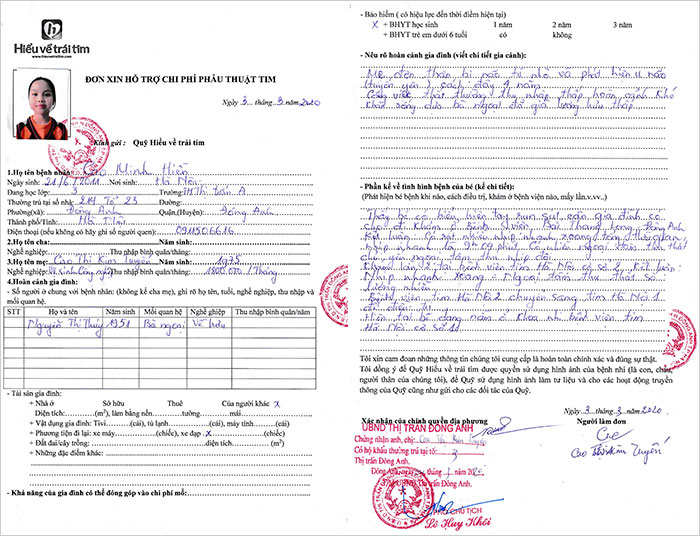 Hiểu về trái tim
www.hieuvetraitim.com
ĐƠN XIN HỖ TRỢ CHI PHÍ PHẪU THUẬT TIM
Ngày 3 tháng 3 năm 2020
Kính gửi : Quỹ Hiểu về trái tim
1.Họ tên bệnh nhân: Cao Minh Hiền
Ngày sinh: 21/6/2011 Nơi sinh: Hà Nội
Đang học lớp: 3 Trường: TH Thị trấn A
Thường trú tại số nhà: 214 Tổ 23 Đường:
Phường(xã): Đông Anh Quận,(Huyện): Đông Anh
Thành phố/Tỉnh: Hà Nội
Điện thoại (nếu không có hãy ghi số người quen): 0911506616
2.Họ tên cha: Năm sinh:
Nghề nghiệp: Thu nhập bình quân/tháng:
3.Họ tên mẹ: Cao Thị Kim Tuyến Năm sinh: 1975
Nghề nghiệp: Vệ sinh Công nghiệp Thu nhập bình quân/tháng: 1800.000 / tháng
4.Hoàn cảnh gia đình:
- Số người ở chung với bệnh nhân: (không kể cha mẹ), ghi rõ họ tên, tuổi, nghề nghiệp, thu nhập và
mối quan hệ.
STT Họ và tên Năm sinh Mối quan hệ Nghề nghiệp Thu nhập bình quân/năm
Nguyễn Thị Thuý 1951 Bà ngoại Về hưu
- Tài sản gia đình:
+ Nhà ở Sở hữu Thuê Của người khác X
Diện tích:(m2), làm bằng nền tường mái
+ Vật dụng gia đình: Tivi (cái), tủ lạnh (cái), máy tính (cái)
+ Phương tiện đi lại: xe máy (chiếc), xe đạp X (chiếc)
+ Đất đai/cây trồng: diện tích (m2)
+ Những đặc điểm khác:
- Khả năng của gia đình có thể đóng góp vào chi phí mổ:
- Bảo hiểm ( có hiệu lực đến thời điểm hiện tại)
X + BHYT học sinh 1 năm 2 năm 3 năm
+ BHYT trẻ em dưới 6 tuổi có không
- Nêu rõ hoàn cảnh gia đình (viết chi tiết gia cảnh):
Mẹ đơn thân bị não từ nhỏ và phát hiện u não
(tuyến yên) cách đây 9 năm
Công việc thất thường thu nhập thấp hoàn cảnh khó
khăn sống dựa bà ngoại đã già lương hưu thấp
- Phần kể về tình hình bệnh của bé (kể chi tiết):
(Phát hiện bé bệnh khi nào, cách điều trị, khám ở bệnh viện nào, mấy lần.v.v..)
Thấy bé có biểu hiện tay run sụt cân gia đình có
cho đi khám ở Bệnh viện Bắc Thăng Long Đông Anh
Tâm thu thất trái tại bệnh viện tim Hà Nội cơ sở 2, kết luận:
Nhịp nhanh xoang - Ngoại tâm thu thất số
lượng nhiều
Bệnh viện tim Hà Nội 2 chuyển sang tim Hà Nội 1
để điều trị
Hiện tại bé đang nằm ở khoa nhi bệnh viện tim
Hà Nội cơ sở 1
Tôi xin cam đoan những thông tin chúng tôi cung cấp là hoàn toàn chính xác và đúng sự thật.
Tôi đồng ý để Quỹ Hiểu về trái tim được quyền sử dụng hình ảnh của bệnh nhi (là con, cháu,
người thân của chúng tôi), để Quỹ sử dụng hình ảnh làm tư liệu và cho các hoạt động truyền
thông của Quỹ cũng như gửi cho các đối tác của Quỹ.
Ngày 3 tháng 3 năm 2020
Xác nhận của chính quyền địa phương Người làm đơn
UBND THỊ TRẤN ĐÔNG ANH
Chứng nhận anh, chị: Cao Thị Kim Tuyến
Có hộ khẩu thường trú tại tổ: 3
Thị trấn Đông Anh.
Cao Thị Kim Tuyến
TM.UBND Thị trấn Đông Anh.
PHÓ CHỦ TỊCH
Lê Huy Khôi